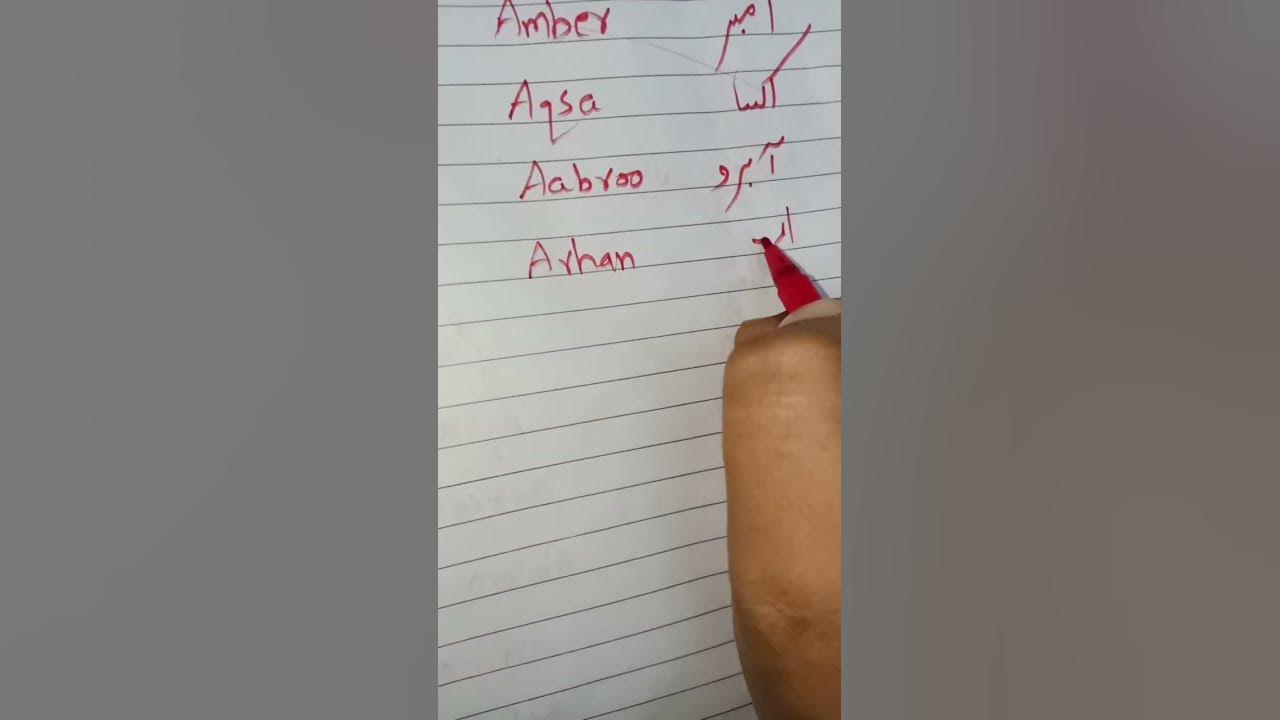 Amber امبر
Aqsa اکسا
Aabroo آبرو
Arhan ار